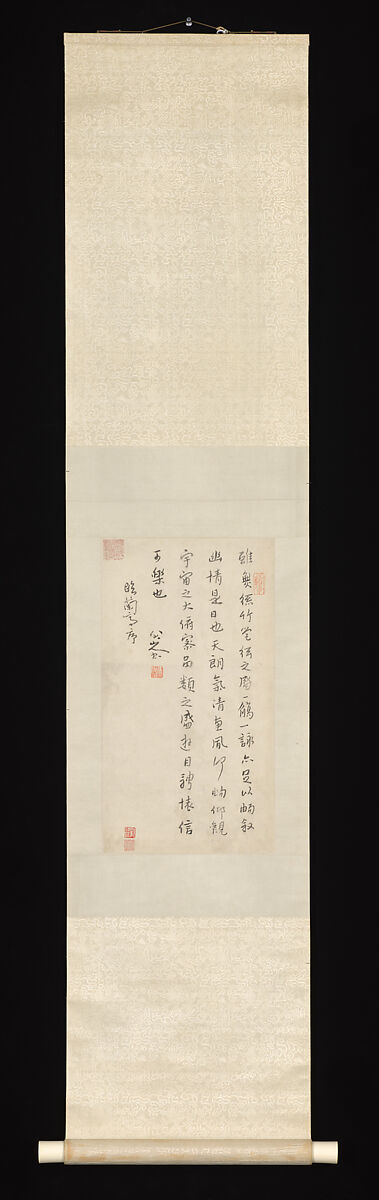 雖無絲竹管絃之盛一觴一詠亦足以暢敘
幽情是日也天朗氣清惠風和暢仰觀
宇宙之大俯察品類之盛遊目騁懷信
可樂也 八大山人
臨蘭亭序